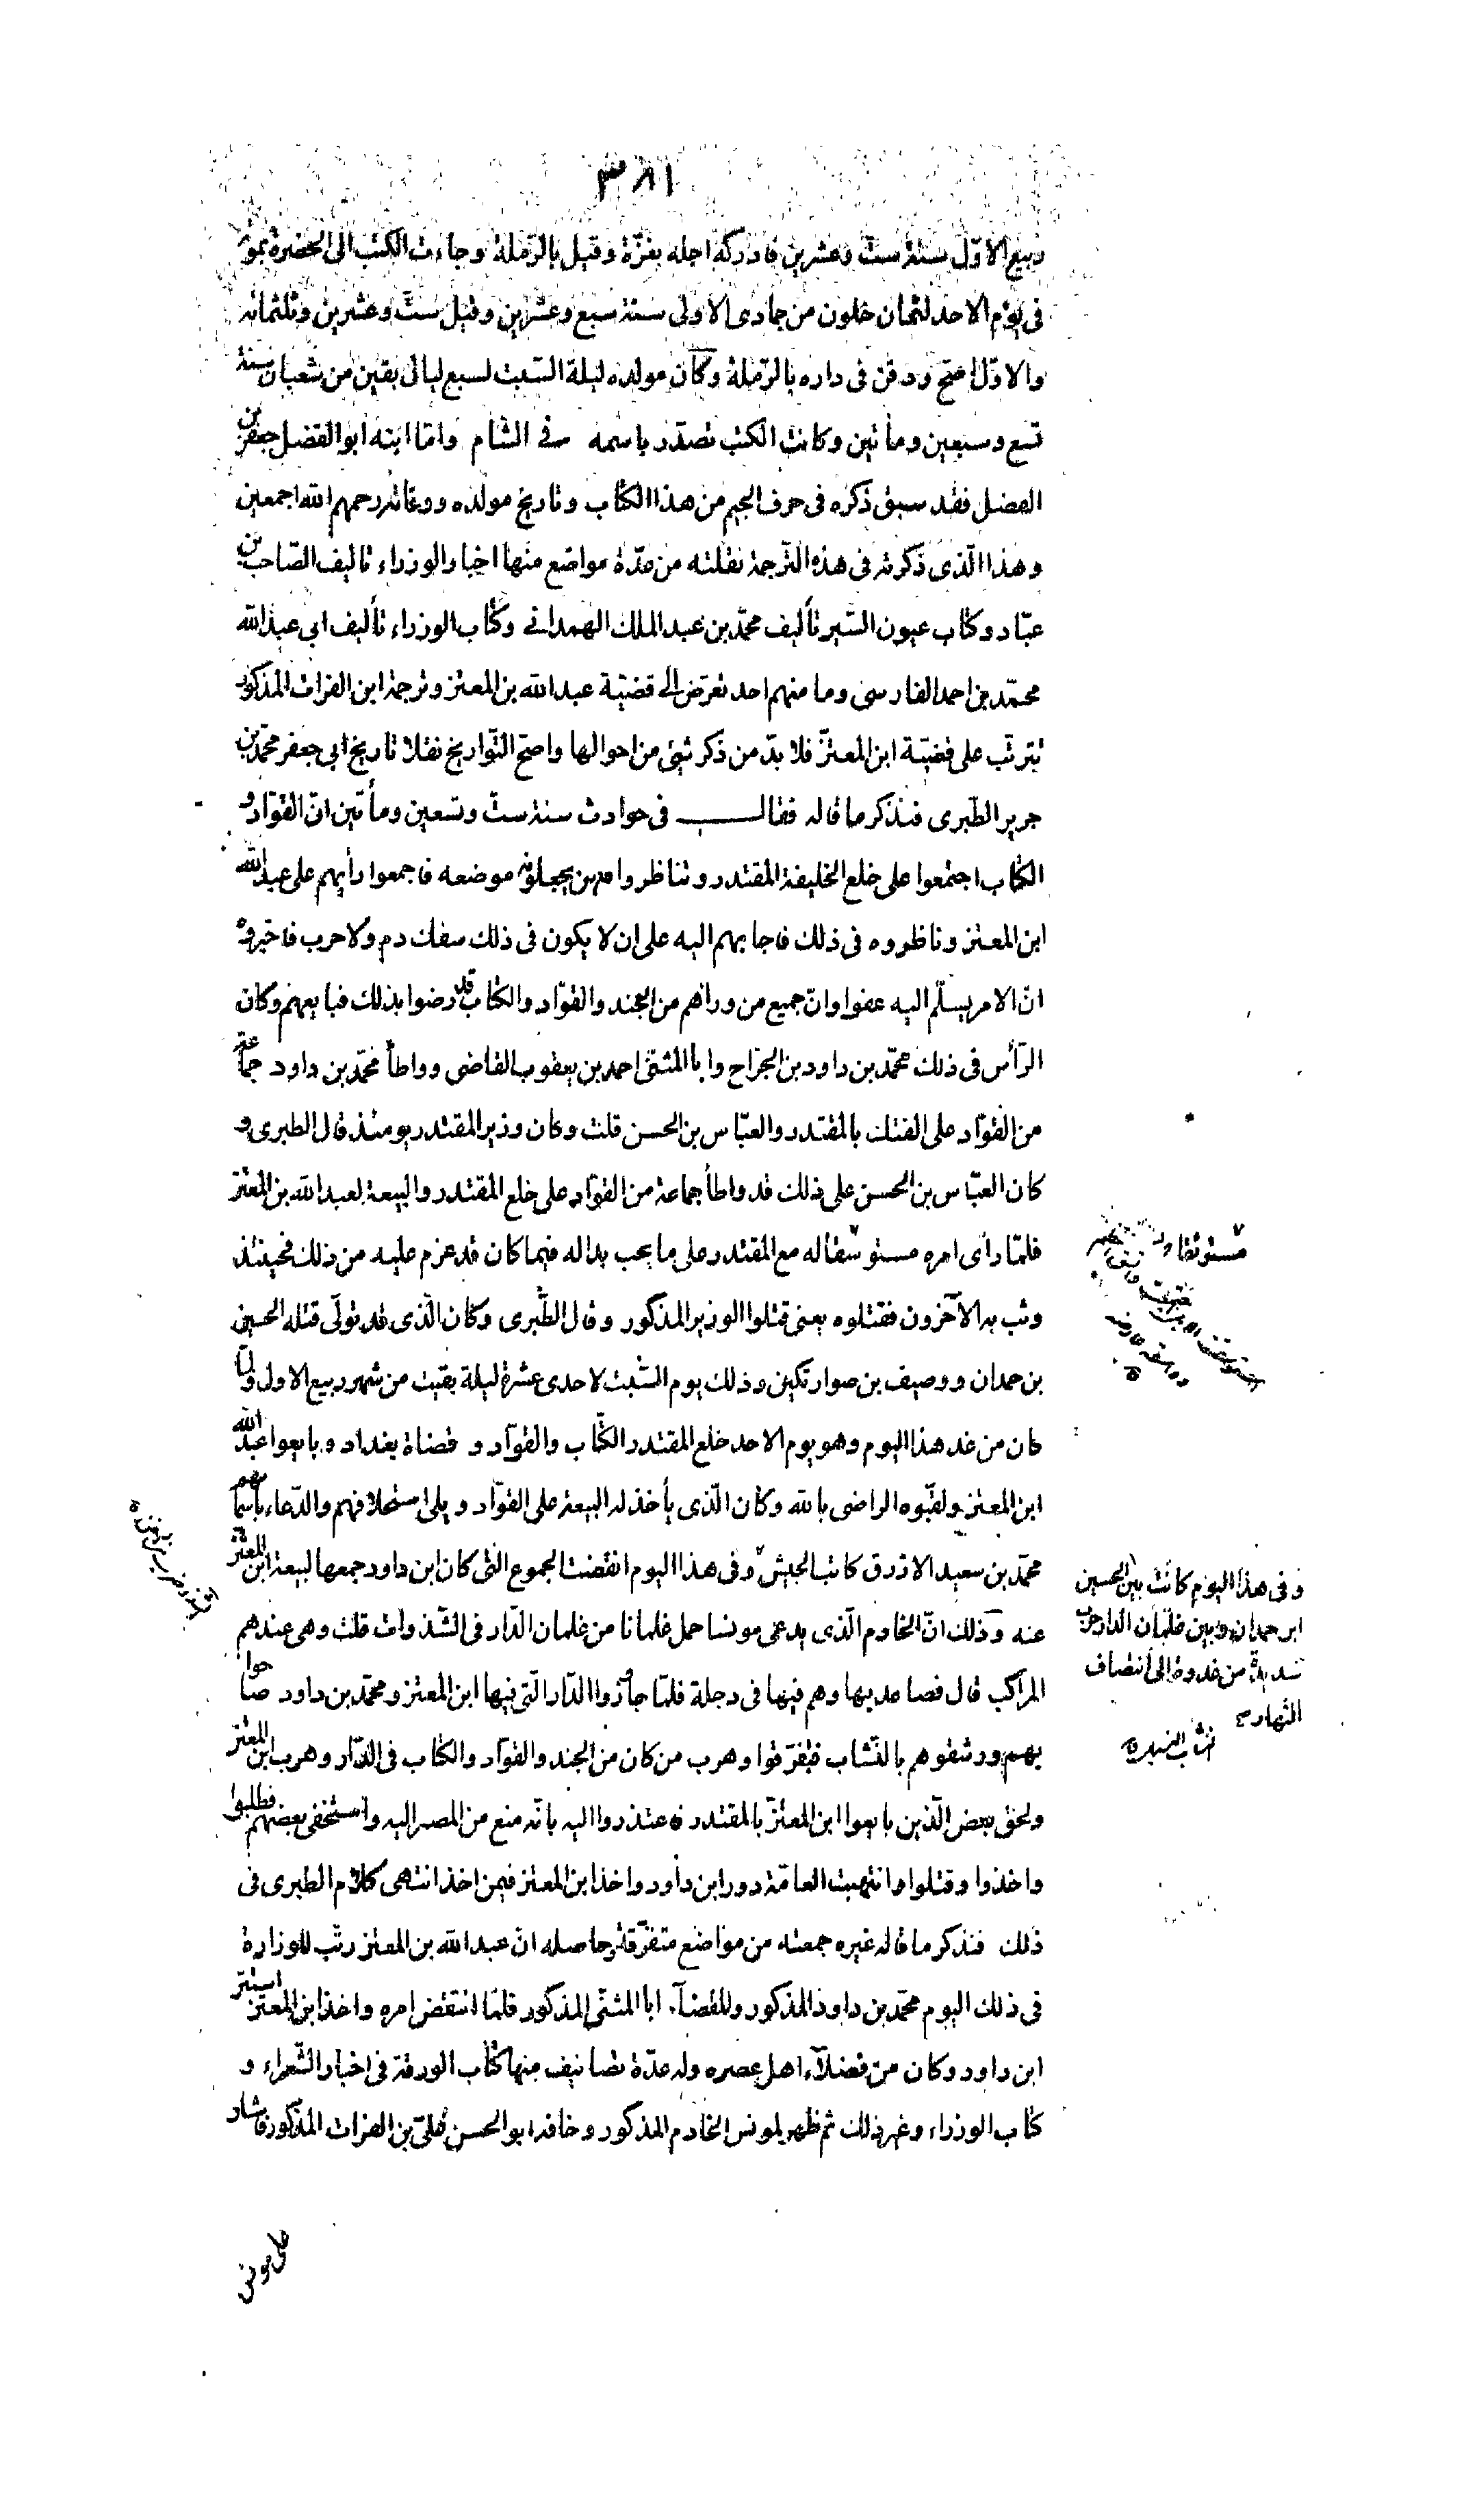 ٣٨١
ربيع الاوّل سنة ستّ وعشرين فادركه اجله بغزّة وقيل بالرّملة وجاءت الكتب الى الحضرة بموته
فى يوم الاحد لثمان خلون من جمادى الاولى سنة سبع وعشرين وقيل ستّ وعشرين وثلثمائه
والاوّل اصحّ ودفن فى داره بالرّملة وكان مولده ليلة السّبت لسبع ليال بقين من شعبان سنة
تسع وسبعين ومأتين وكانت الكتب تصدّر باسمه فى الشام وامّا ابنه ابو الفضل جعفر بن
الفضل فقد سبق ذكره فى حرف الجيم من هذا الكتاب وتاريخ مولده ووفاته رحمهم الله اجمعين
وهذا الّذى ذكرته فى هذه التّرجمة نقلته من عدّة مواضع منها اخبار الوزراء تاليف الصّاحب بن
عبّاد وكتاب عيون السّير تأليف محمّد بن عبد الملك الهمدانى وكتاب الوزراء تأليف ابى عبد الله
محمّد بن احمد الفارسى وما منهم احد تعرّض الى قضيّة عبد الله بن المعتز وترجمة ابن الفرات المذكور
تترتّب على قضيّة ابن المعتزّ فلا بدّ من ذكر شئ من احوالها واصحّ التّواريخ نقلا تاريخ ابى جعفر محمّد بن
جرير الطّبرى فنذكر ما قاله فقال فى حوادث سنة ستّ وتسعين ومأتين انّ القوّاد و
الكتاب اجتمعوا على خلع الخليفة المقتدر وتناظروا فيمن يجعلونه موضعه فاجمعوا رأيهم على عبد الله
ابن المعتز وناظروه فى ذلك فاجابهم اليه على ان لا يكون فى ذلك سفك دم ولا حرب فاخبروه
انّ الامر يسلّم اليه عفوا وانّ جميع من ورائهم من الجند والقوّاد والكتاب قد رضوا بذلك فبايعهم وكان
الرّأس فى ذلك محمّد بن داود بن الجرّاح وابا المثنّى احمد بن يعقوب القاضى وواطأ محمّد بن داود جماعة
من القوّاد على الفتك بالمقتدر والعبّاس بن الحسن قلت وكان وزير المقتدر يومئذ قال الطبرى و
كان العبّاس بن الحسن على ذلك قد واطأ جماعة من القوّاد على خلع المقتدر والبيعة لعبد الله بن المعتز
فلمّا رأى امره مستوسقا له مع المقتدر على ما يحب بدا له فيما كان قد عزم عليه من ذلك فحينئذ
وثب به الآخرون فقتلوه يعنى قتلوا الوزير المذكور وقال الطّبرى وكان الّذى قد تولّى قتله الحسين
بن حمدان ووصيف بن صوارتكين وذلك يوم السّبت لاحدى عشرة ليلة بقيت من شهر ربيع الاول ولمّا
كان من غد هذا اليوم وهو يوم الاحد خلع المقتدر الكتّاب والقوّاد و قضاة بغداد وبايعوا عبد الله
ابن المعتز ولقّبوه الراضى بالله وكان الّذى يأخذ له البيعة على القوّاد ويلى استحلافهم والدّعاء باسمائهم
محمّد بن سعيد الازرق كاتب الجيش وفى هذا اليوم انفضت الجموع الّتى كان ابن داود جمعها لبيعة ابن المعتز
عنه وذلك انّ الخادم الّذى يدعى مونسا حمل غلمانا من غلمان الدّار فى الشّذوات قلت وهى عندهم
المراكب قال فصاعد بها وهم فيها فى دجلة فلمّا جاذوا الدّار الّتى فيها ابن المعتز ومحمّد بن داود صاحوا
بهم ورشقوهم بالنّشاب فتفرّقوا وهرب من كان من الجند والقوّاد والكتاب فى الدّار وهرب ابن المعتز
ولحق بعض الّذين بايعوا ابن المعتزّ بالمقتدر فاعتذروا اليه بانّه منع من المصير اليه واستخفى بعضهم فطلبوا
واخذوا وقتلوا وانتهبت العامّة دور ابن داود واخذ ابن المعتز فيمن اخذ انتهى كلام الطبرى فى
ذلك فنذكر ما قاله غيره جمعته من مواضع متفرّقة وحاصله انّ عبد الله بن المعتز رتّب للوزارة
فى ذلك اليوم محمّد بن داود المذكور وللقضآء ابا المثنّى المذكور فلمّا انتقض امره واخذ ابن المعتز استتر
ابن داود وكان من فضلآء اهل عصره وله عدّة تصانيف منها كتاب الورقة فى اخبار الشّعراء و
كتاب الوزراء وغير ذلك ثم ظهر لمونس الخادم المذكور وخافه ابو الحسن علىّ بن الفرات المذكور فاشار
على مونس
مستوثقا
وفى هذا اليوم كانت بين الحسين
ابن حمدان وبين غلمان الدار حرب
شديدة من غدوة الى انتصاف
النهار صح